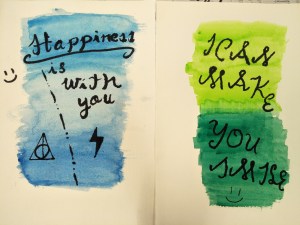 Happiness
is
with
you
I CAN
MAKE
YOU
SMILE